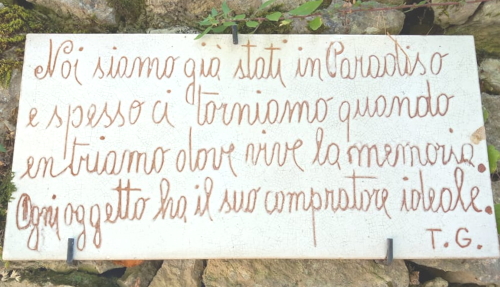 Noi siamo già stati in Paradiso
e spesso ci torniamo quando
entriamo dove vive la memoria.
Ogni oggetto ha il suo compratore ideale.
T.G.